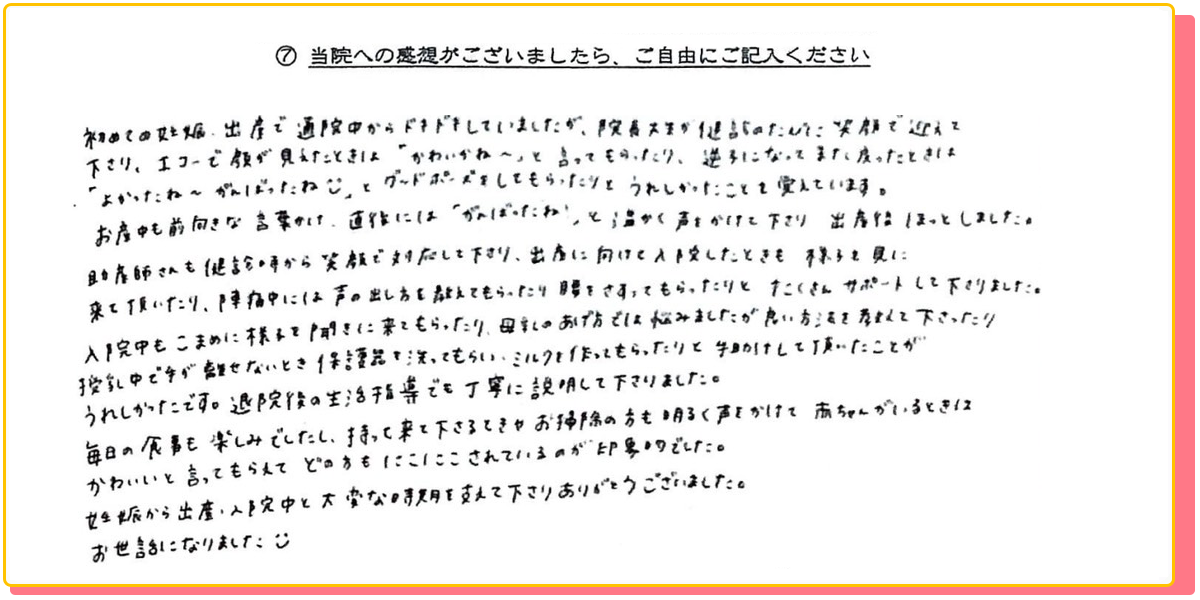 ⑦ 当院への感想がございましたら、ご自由にご記入ください
初めての妊娠、出産で通院中からドキドキしていましたが、院長先生が健診のたびに笑顔で迎えて
下さり、エコーで顔が見えたときは「かわいかね〜」と言ってもらったり、逆子になってまた戻ったときは
「よかったね〜がんばったね☺」とグッドポーズをしてもらったりとうれしかったことを覚えています。
お産中も前向きな言葉かけ、直後には「がんばったね!」と温かく声をかけて下さり出産後ほっとしました。
助産師さんも健診時から笑顔で対応して下さり、出産に向けて入院したときも様子を見に
来て頂いたり、陣痛中には声の出し方を教えてもらったり腰をさすってもらったりとたくさんサポートして下さりました。
入院中もこまめに様子を聞きに来てもらったり、母乳のあげ方では悩みましたが良い方法を考えて下さったり
授乳中で手が離せないとき保護器を洗ってもらい、ミルクを作ってもらったりと手助けして頂いたことが
うれしかったです。退院後の生活指導でも丁寧に説明して下さりました。
毎日の食事も楽しみでしたし、持って来て下さるときやお掃除の方も明るく声をかけて赤ちゃんがいるときは
かわいいと言ってもらえてどの方もにこにこされているのが印象的でした。
妊娠から出産、入院中と大変な時期を支えて下さりありがとうございました。
お世話になりました☺